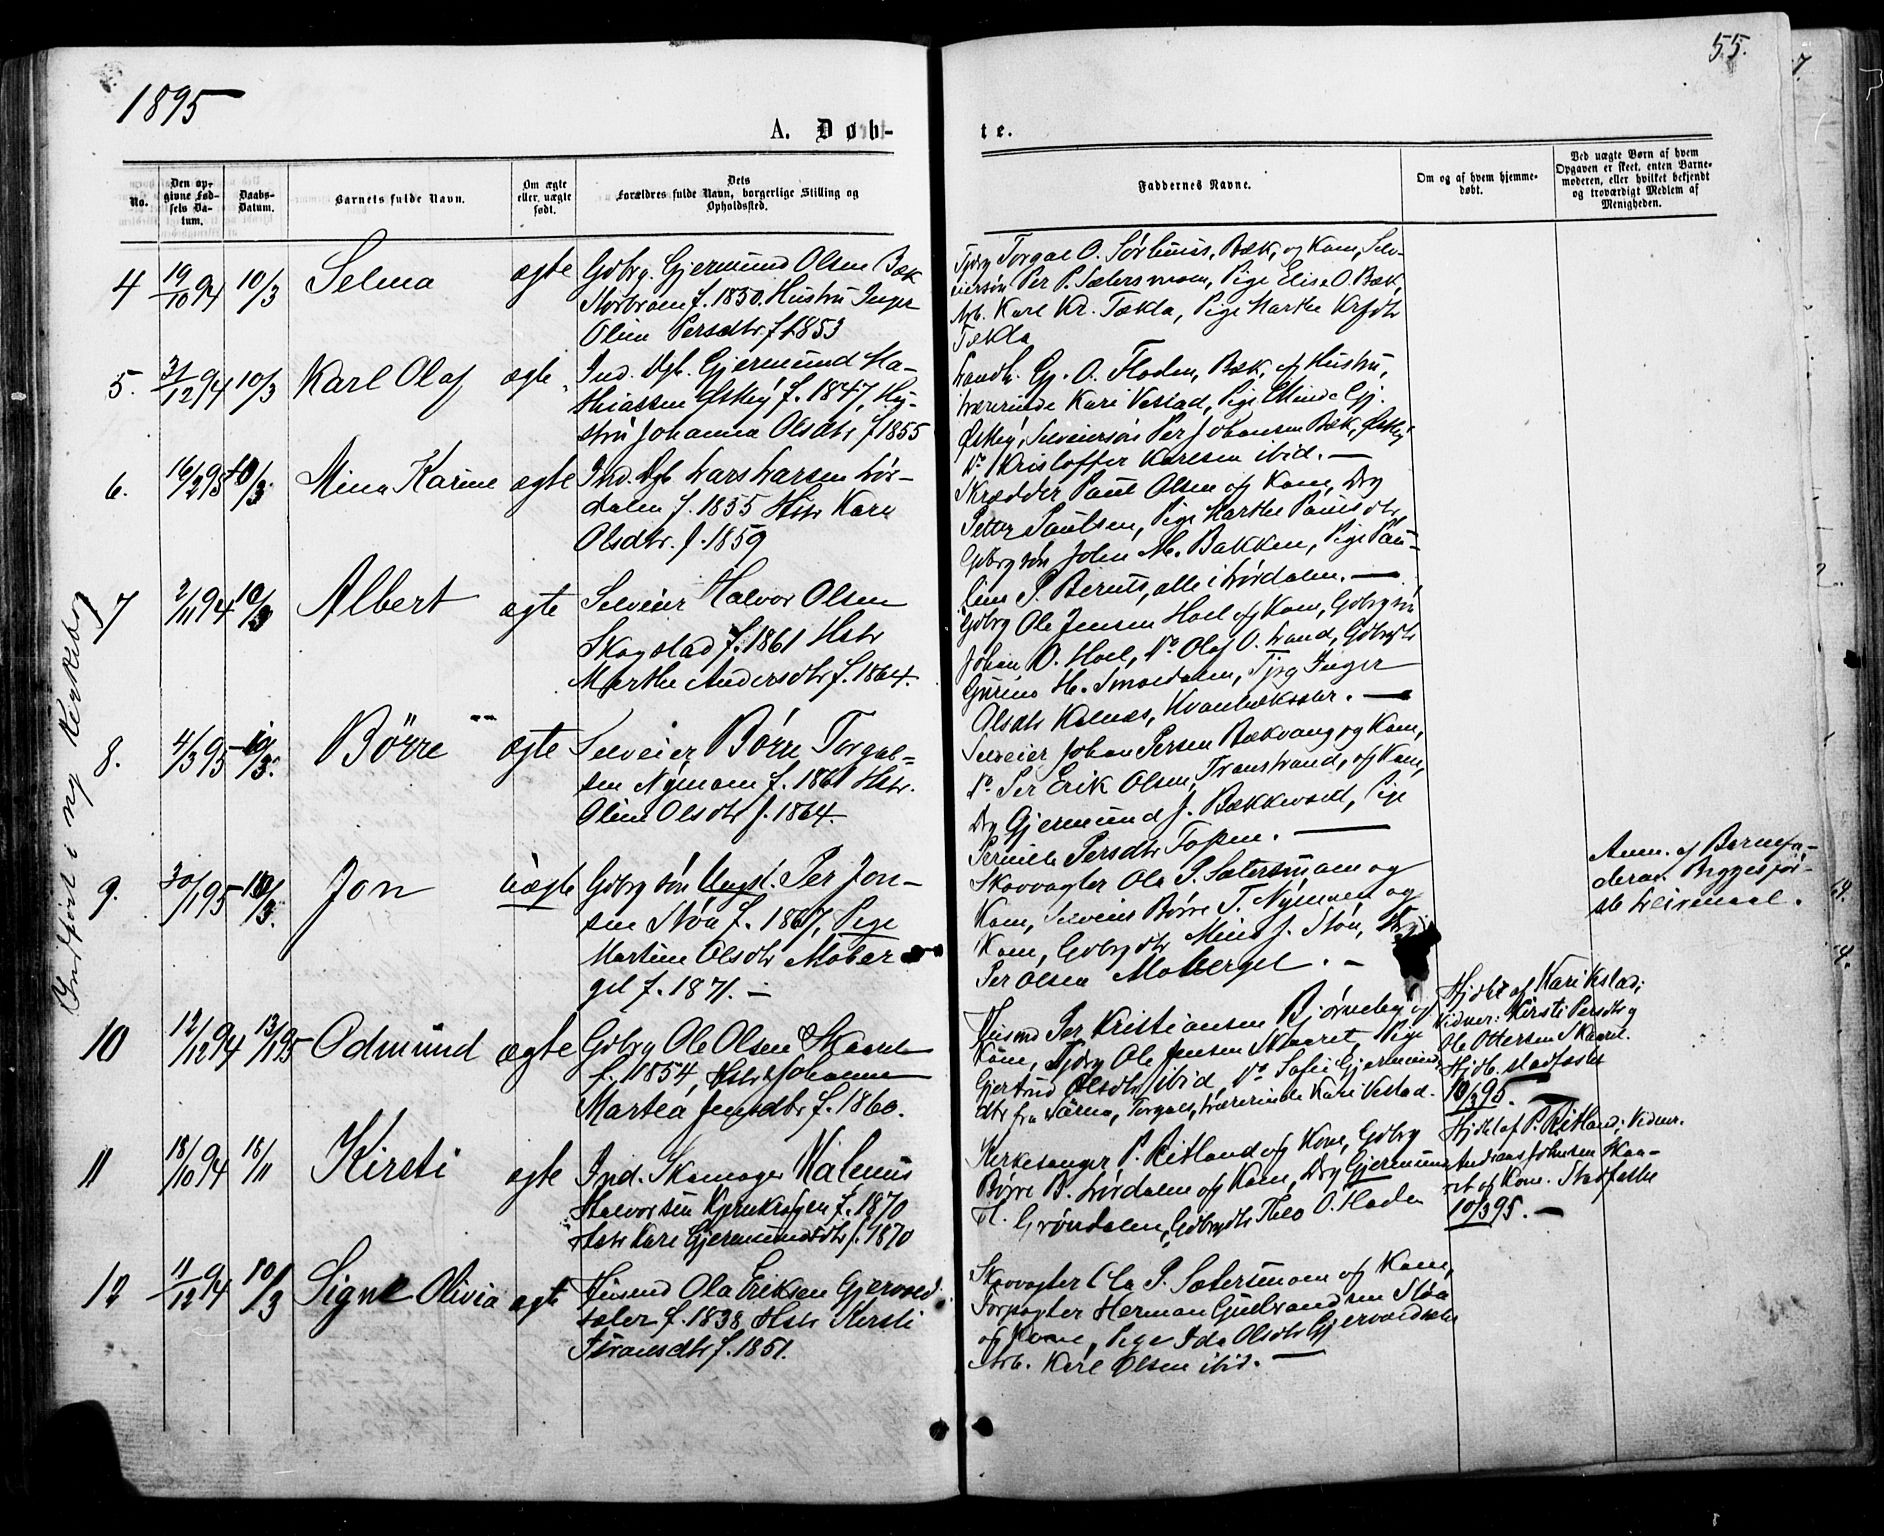 1895
55.
A. Døb-
te.
No.
Den op-
givne Fød-
sels Da-
tum.
Daabs-
Datum.
Barnets fulde Navn.
Om ægte
eller uægte
født.
Dets
Forældres fulde Navn, borgerlige Stilling og
Opholdssted.
Faddernes Navne.
Om og af hvem hjemme-
døbt.
Ved uægte Børn af hvem
Opgaven er skeet, enten Barne-
moderen, eller hvilket bekjendt
og troværdigt Medlem af
Menigheden.
Indført i ny Kirkebog
4 19/10 94 10/3 Selma ægte Gdbrg. Gjermund Olsen Bæk
Nordmoen f. 1850. Hustru Inger
Oline Persdtr f. 1853
Torgal O. Sørhuus, Bæk, og Kone, Selv-
eiersøn Per P. Sætersmoen, Pige Elise O. Bæk,
Arb. Karl Kr. Tækla, Pige Marthe
Tækla
5. 31/12 94 10/3 Karl Olaf ægte Ind. Dgl. Gjermund Ma-
thiassen f. 1847, Hu-
stru Johanna Olsdtr f. 1855
Landh. Gj. O. Floden, Bæk, og Hustru,
Lærerinde Kari Vestad, Pige Minda Gj.
Selveiersøn Per Johansen Bæk,
Do Kristoffer Karlsen ibid. —
6. 16/2 95 10/3 Mina Karine ægte Ind. Dgl. Lars Larsen Lør-
dalen f. 1855 Hstr Kari
Olsdtr. f. 1859
Skrædder Paul Olsen og Kone, Drg
Petter Paulsen, Pige Marthe Paulsdtr,
Gdbrgsøn John M. Bakken, Pige Pau-
line P. Bernts, alle i Lørdalen. —
7 2/11 94 10/3 Albert ægte Selveier Halvor Olsen
Skogstad f. 1861 Hstr
Marthe Andersdtr f. 1864.
Gdbrg Ole Jensen Hoel og Kone, Gdbrgsøn
Johan O. Hoel, Do Olaf O. Strand, Gdbrgdtr
Gurine H. Smoldalen, Tjpg Inger
Olsdtr Kalnæs, —
8. 4/3 95 10/3. Börre ægte Selveier Börre Torgal-
sen Nymoen f. 1861 Hstr.
Oline Olsdtr f. 1864.
Selveier Johan Persen Bækvang og Kone,
Do Per Erik Olsen, Transtrand, og Kone,
Drg Gjermund J. Bækkevold, Pige
Pernille Persdtr Toppen. —
9. 30/1 95 10/3. Jon uægte Gdbrg søn Ungd. Per Jon-
sen Støa f. 1867, Pige
Martine Olsdtr Mober-
get f. 1871. —
Skovvogter Ole P. Sætersmoen og
Kone, Selveier Börre T. Nymoen og
Kone, Gdbrgdtr Mina J. Støa, Drg
Per Olsen Moberget. —
Anm. af Barnefa-
deren. Begges før-
ste Leiermaal.
10 12/12 94 13/1 95 Odmund ægte Gdbrg Ole Olsen Skaaret
f. 1854, Hstr Johanne
Martea Jensdtr f. 1860.
Husmd Per Kristiansen Bjørneby og
Kone, Tjdrg Ole Jensen Skaaret, Pige
Gjertrud Olsdtr ibid, Do Sofie Gjermunds-
dtr fra Särna, Torgals, Lærerinde Kari Vestad.
Hjdbt af Kari Kstad;
Vidner: Kirsti Persdtr og
Ole Ottersen Skaaret.
Hjdb. stadfæstet
10/3 95. —
11 18/10 94 18/11 Kirsti ægte Ind. Skomager Malenus
Halvorsen Kjernkrogen f. 1870
Hstr Kari Gjermundsdtr f. 1870
Kirkesanger P. Ritland og Kone, Gdbrg
Börre B. Lørdalen og Kone, Drg Gjermund
Grøndalen, Gdbrgdtr Thea O. Floden
Hjdbt af P. Ritland; Vidner.
Andreas Johnsen Skaa-
ret og Kone. Stadfæstet
10/3 95. —
12 11/12 94 10/3 Signe Olivia ægte Husmd Ola Eriksen Gjervold-
sæter f. 1838 Hstr Kersti
Jöransdtr f. 1851.
Skovvogter Ola P. Sætersmoen og Kone,
Forpagter Herman Gulbrandsen Støa
og Kone, Pige Ida Olsdtr Gjervoldsæter
Arb. Karl Olsen ibid. —